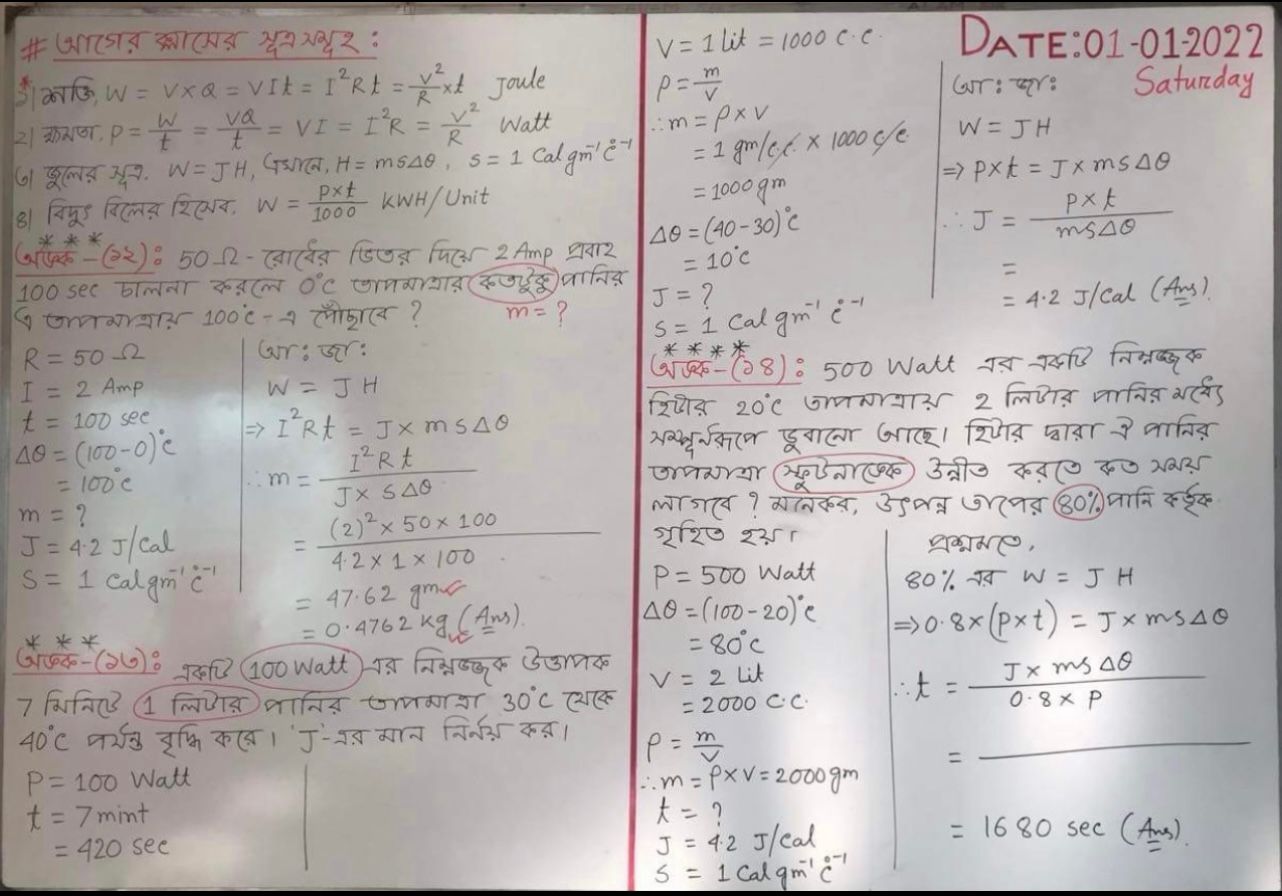 # আগের ক্লাসের সূত্র সমূহ :
*১| শক্তি, W = V×Q = VIt = I²Rt = V²/R ×t Joule
2| ক্ষমতা, P = W/t = VQ/t = VI = I²R = V²/R Watt
৩| জুলের সূত্র. W = JH, এখানে, H = msΔθ, S = 1 Cal gm⁻¹ °C⁻¹
8| বিদ্যুৎ বিলের হিসেব. W = P×t/1000 KWH/Unit
* * *
অঙ্ক-(১২): 50 Ω - রোধের ভিতর দিয়ে 2 Amp প্রবাহ
100 sec চালনা করলে 0°C তাপমাত্রার কতটুকু পানির
তাপমাত্রায় 100°C - এ পৌঁছাবে ? m = ?
R = 50 Ω
I = 2 Amp
t = 100 sec
Δθ = (100-0)°C
= 100°C
m = ?
J = 4.2 J/Cal
S = 1 Cal gm⁻¹ °C⁻¹
আ: জা:
W = JH
⇒ I²Rt = J × msΔθ
∴ m = I²Rt / J × SΔθ
= (2)² × 50 × 100 / 4.2 × 1 × 100
= 47.62 gm
= 0.4762 kg (Ans).
* * *
অঙ্ক-(১৩): একটি 100 Watt এর নিমজ্জক উত্তাপক
7 মিনিটে 1 লিটার পানির তাপমাত্রা 30°C থেকে
40°C পর্যন্ত বৃদ্ধি করে। 'J'-এর মান নির্নয় কর।
P = 100 Watt
t = 7 mint
= 420 sec
V = 1 Lit = 1000 C.C.
ρ = m/V
∴ m = ρ × V
= 1 gm/c.c. × 1000 c/c
= 1000 gm
Δθ = (40-30)°C
= 10°C
J = ?
S = 1 Cal gm⁻¹ °C⁻¹
DATE:01-01-2022
Saturday
আ: জা:
W = JH
⇒ P×t = J × msΔθ
∴ J = P×t / msΔθ
=
= 4.2 J/Cal (Ans).
* * * *
অঙ্ক-(১৪): 500 Watt এর একটি নিমজ্জক
হিটার 20°C তাপমাত্রায় 2 লিটার পানির মধ্যে
সম্পূর্নরূপে ডুবানো আছে। হিটার দ্বারা ঐ পানির
তাপমাত্রা স্ফুটনাঙ্কে উন্নীত করতে কত সময়
লাগবে ? মনেকর, উৎপন্ন তাপের 80% পানি কর্তৃক
গৃহিত হয়।
P = 500 Watt
Δθ = (100-20)°C
= 80°C
V = 2 Lit
= 2000 C.C.
ρ = m/V
∴ m = ρ×V = 2000 gm
t = ?
J = 4.2 J/Cal
S = 1 Cal gm⁻¹ °C⁻¹
প্রশ্নমতে,
80% এর W = JH
⇒ 0.8×(P×t) = J × msΔθ
∴ t = J × msΔθ / 0.8 × P
=
= 1680 sec (Ans).